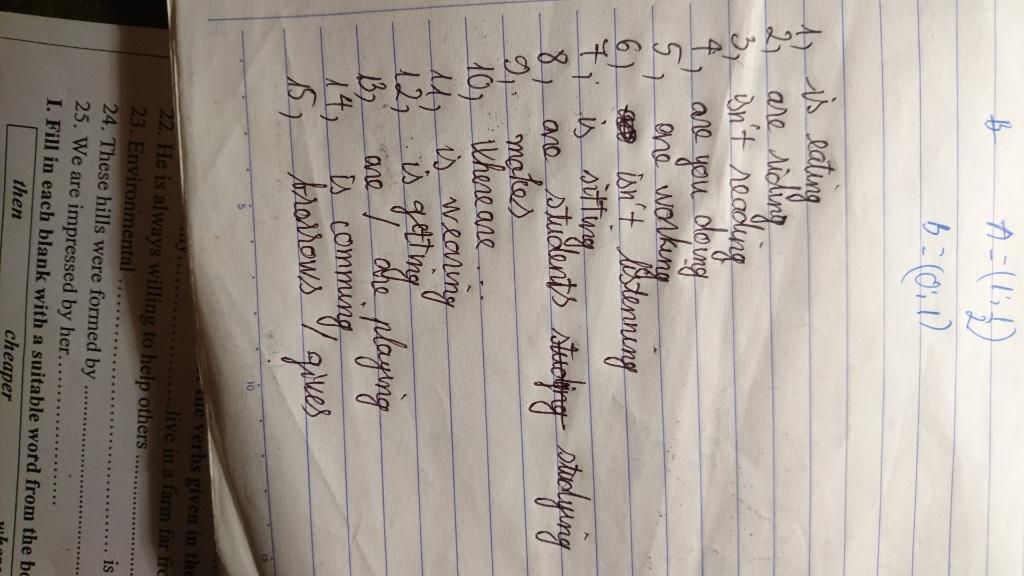 B
A = (1; 2)
B = (0; 1)
1, is eating
2, are riding
3, isn't reading
4, are you doing
5, are working
6, isn't listenning
7, is sitting
8, are students studying studying
9, makes
10, Where are ...
11, is wearing
12, is getting
13, are / are playing
14, is comming
15, borrows / gives
5
10
15
the verbs given in the
live in a farm far fro
22. He is always willing to help others
23. Environmental
24. These hills were formed by ........ is
25. We are impressed by her
I. Fill in each blank with a suitable word from the bo
then cheaper